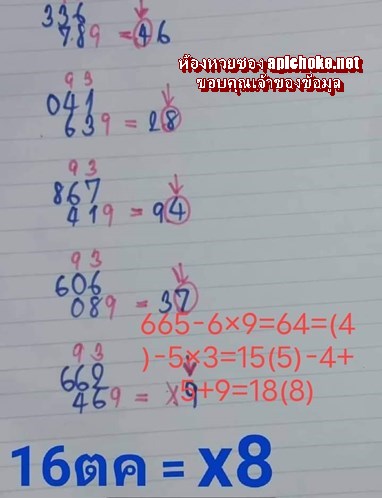 336
789 = 46
ห้องหวยซอง aplchoke.net
ขอบคุณเจ้าของข้อมูล
93
041
639 = 28
93
867
419 = 94
93
606
089 = 37
665-6×9=64=(4
)-5×3=15(5)-4+
5+9=18(8)
93
662
469 = ×9
16ตค = X8